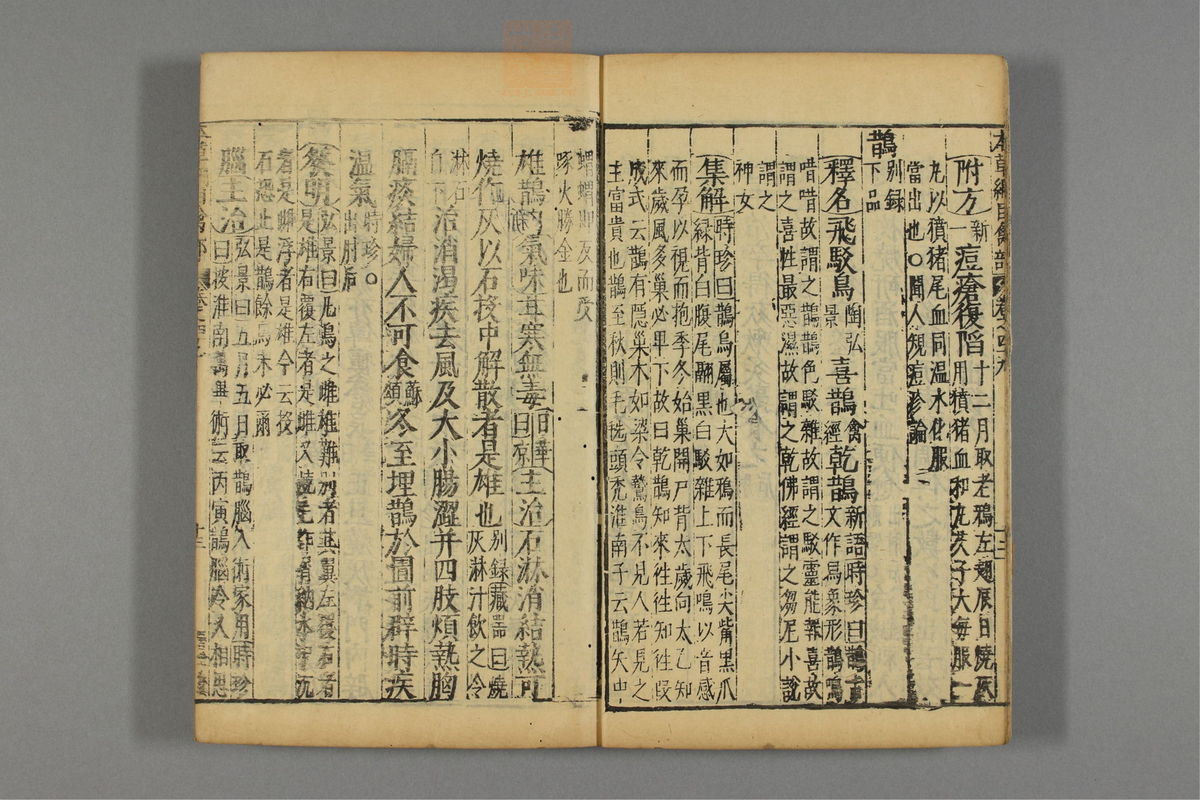 本草綱目禽部 卷之四九
附方新一痘瘡復陷十二月取老鴉左翅辰日燒灰
用豶猪血和丸芡子大每服一
丸以豶猪尾血同温水化服
當出也○聞人規痘疹論
鵲别録下品
釋名飛駁鳥陶弘景喜鵲禽經乾鵲新語時珍曰鵲古文作舄象形鵲鳴
唶唶故謂之鵲鵲色駁雜故謂之駁靈能報喜故
謂之喜性最惡濕故謂之乾佛經謂之芻尼小說
謂之神女
集解時珍曰鵲烏屬也大如鴉而長尾尖觜黑爪
緑背白腹尾翮黑白駁雜上下飛鳴以音感
而孕以視而抱季冬始巢開戸背太歲向太乙知
來歲風多巢必卑下故曰乾鵲知來徃徃知徃段
成式云鵲有隠巢木如梁令鷙鳥不見人若見之
主富貴也鵲至秋則毛毨頭秃淮南子云鵲矢中
蝟蝟即反而受
啄火勝金也
雄鵲肉氣味甘寒無毒日華曰凉主治石淋消結熱可
燒作灰以石投中解散者是雄也别録藏器曰燒灰淋汁飲之令
淋石自下治消渴疾去風及大小腸澀并四肢煩熱胸
膈痰結婦人不可食蘇頌冬至埋鵲於圊前辟時疾
温氣時珍○出肘后
發明弘景曰凡鳥之雌雄難别者其翼左覆右者
是雄右覆左者是雌又燒毛作屑納水中沉
者是雌浮者是雄今云投
石恐止是鵲餘鳥未必爾
腦主治弘景曰五月五日取鵲腦入術家用時珍
曰按淮南萬畢術云丙寅鵲腦令人相思